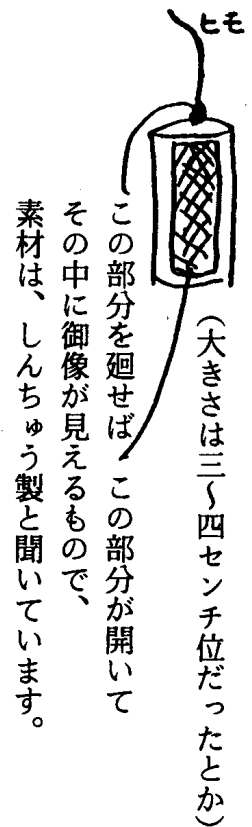 ヒモ
(大きさは三〜四センチ位だったとか)
この部分を廻せば この部分が開いて
その中に御像が見えるもので、
素材は、しんちゅう製と聞いています。